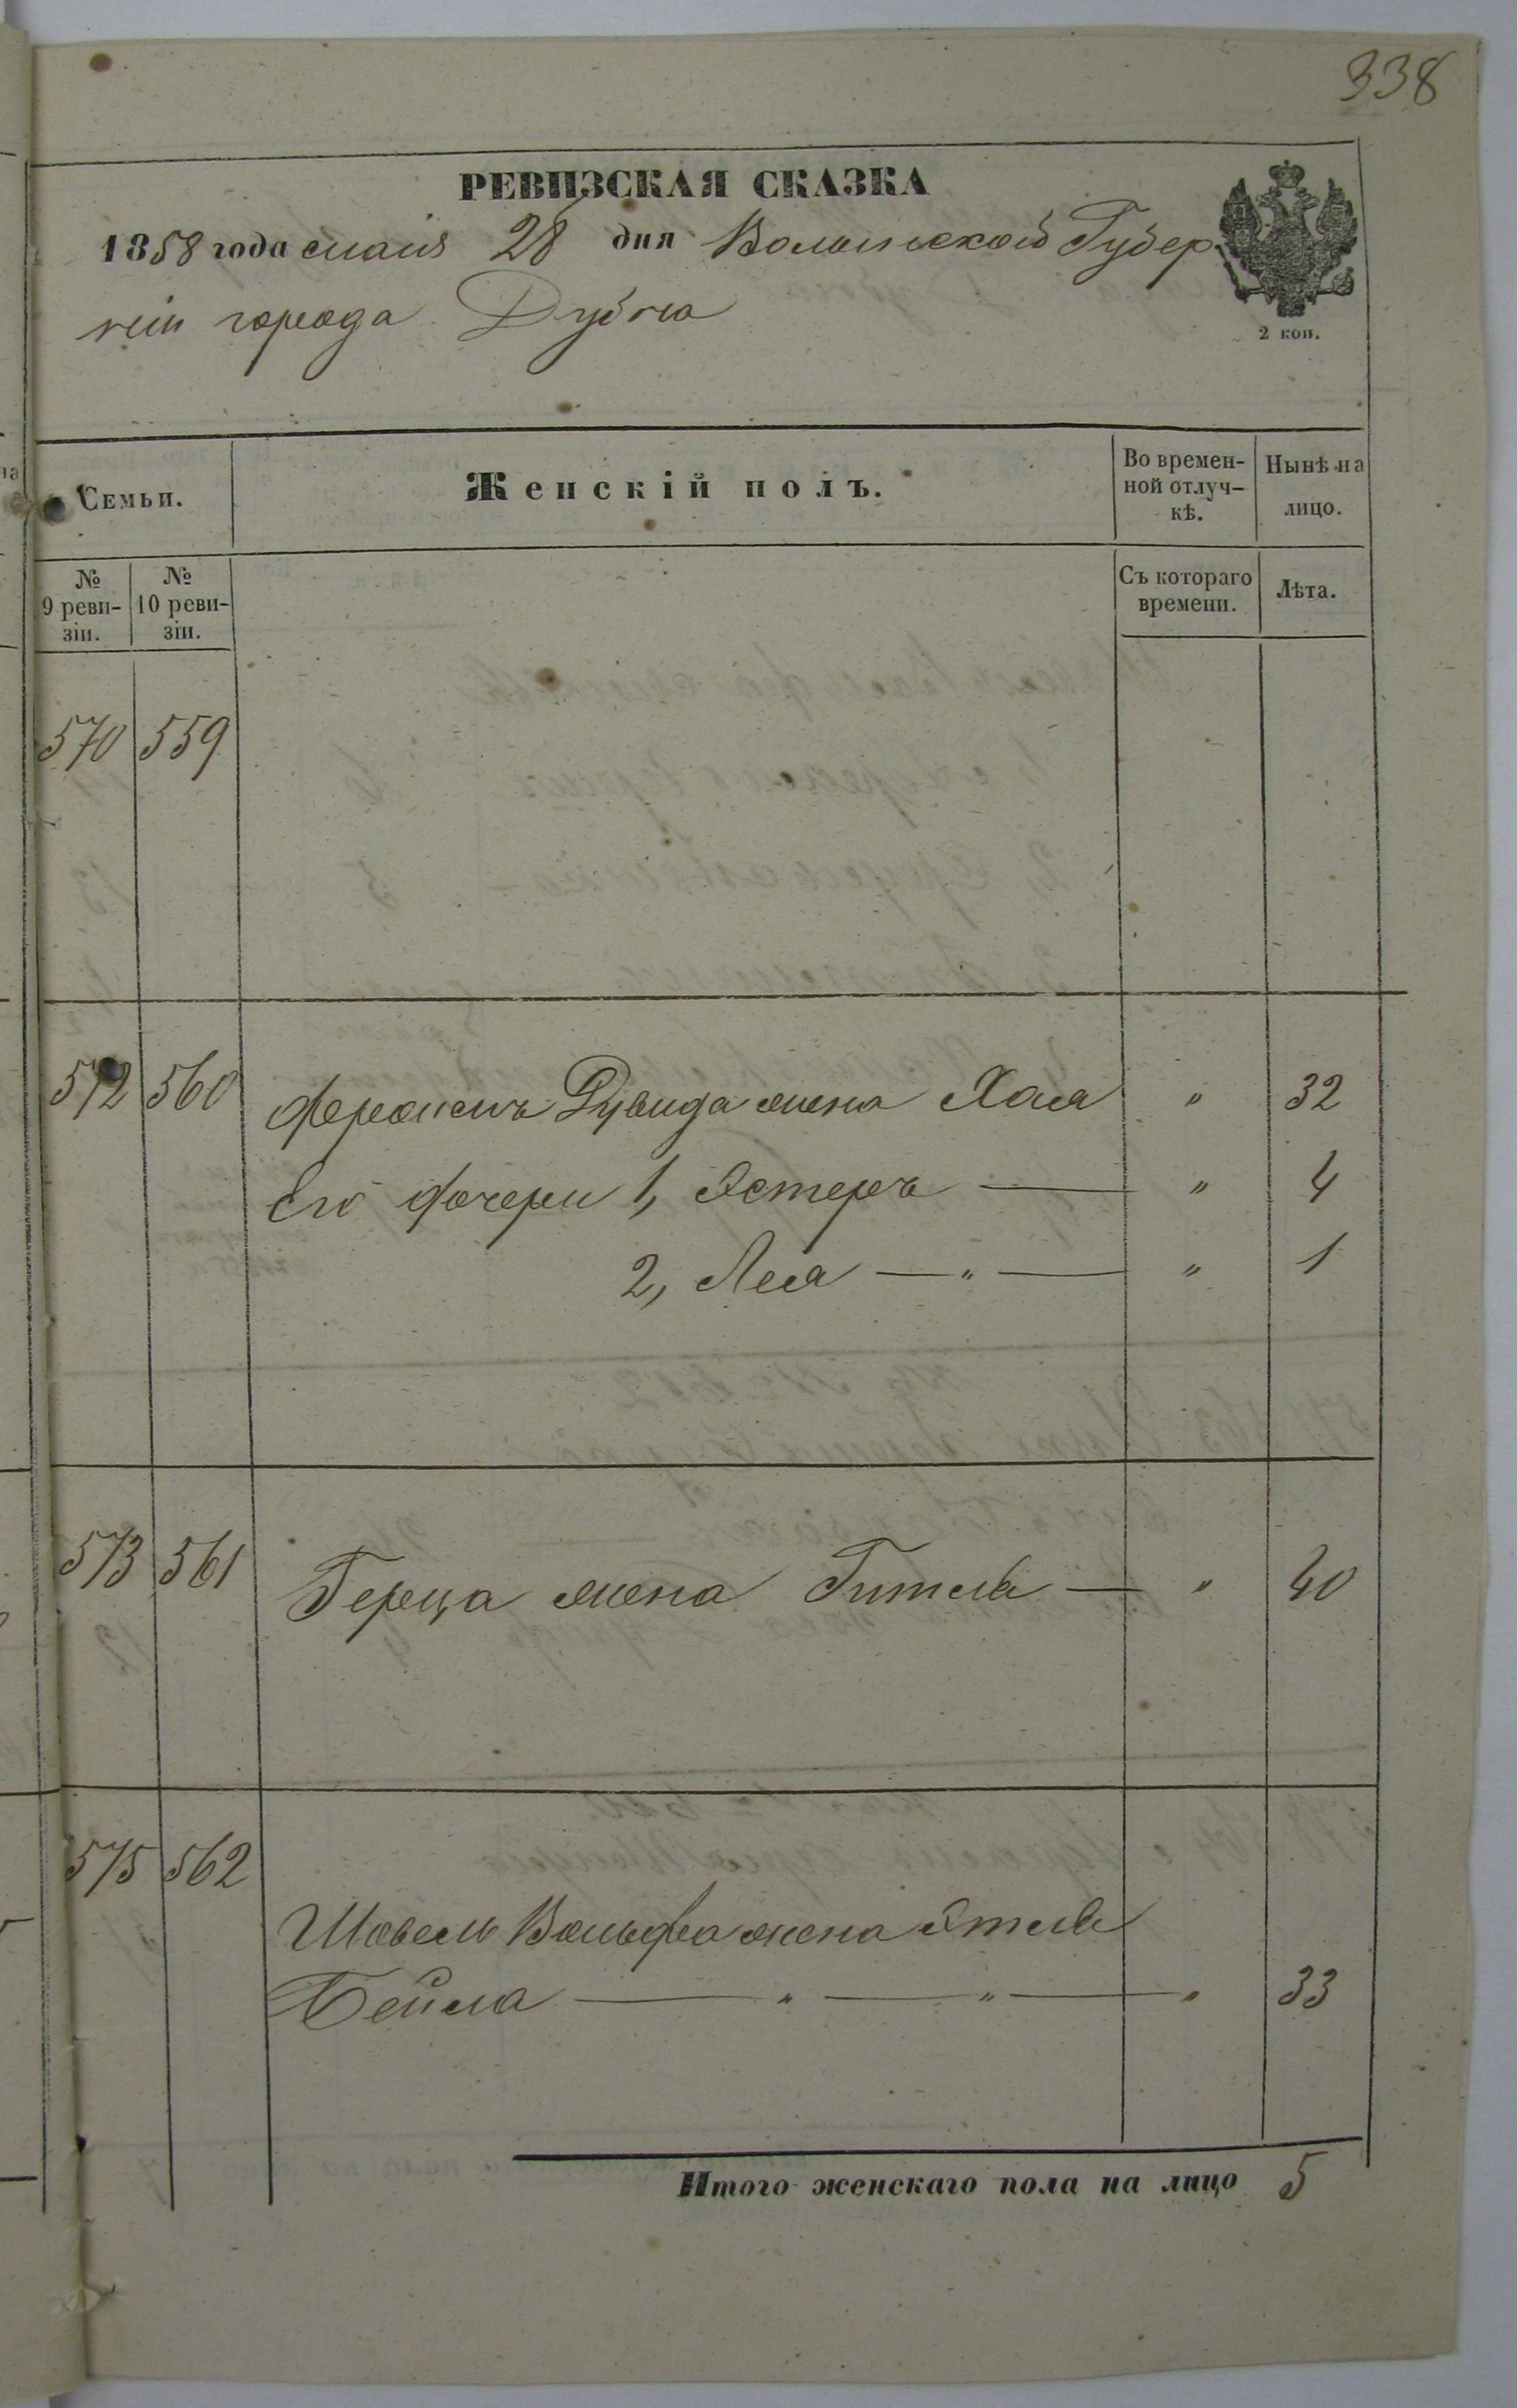 338
РЕВИЗСКАЯ СКАЗКА
1858 года маія 28 дня Волынской Губер
ніи города Дубна
2 коп.
Семьи.
Женскій полъ.
Во времен-
ной отлуч-
кѣ.
Нынѣ на
лицо.
№
9 реви-
зіи.
№
10 реви-
зіи.
Съ котораго
времени.
Лѣта.
570 559
572 560 жена Хая " 32
Его дочери 1, Эстеръ — " 4
2, Лея — " — " 1
573 561 Герца жена Гитля — " 40
575 562
Шовель Вольфа жена Этля
Бейла — " — " — " 33
Итого женскаго пола на лицо 5